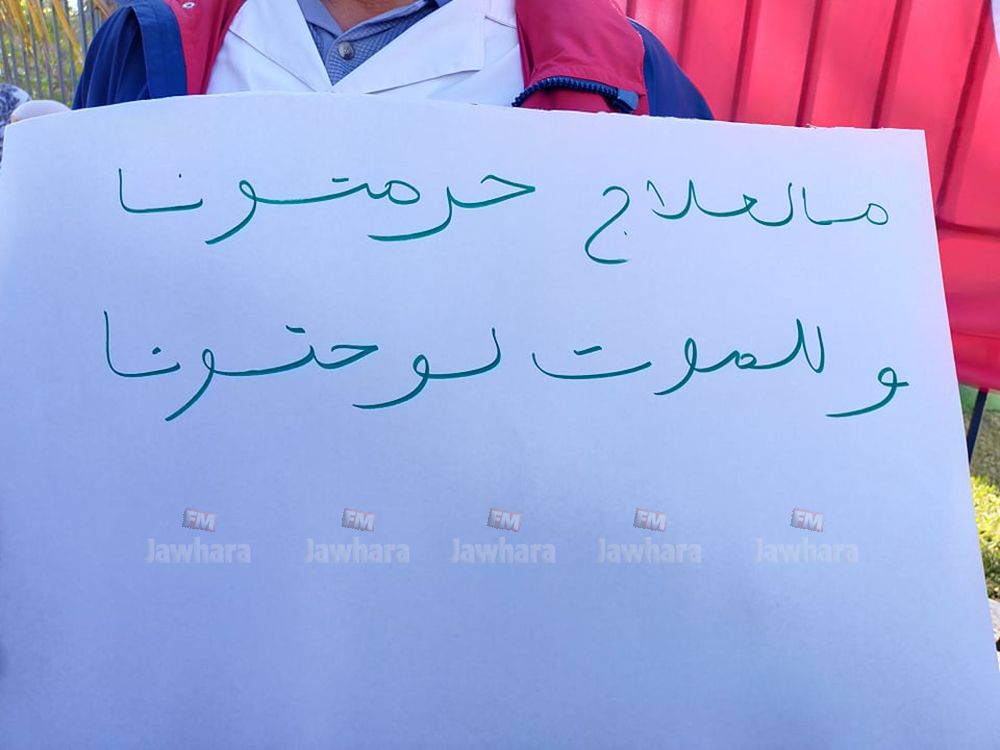 مالعلاج حرمتونا
و للموت لوحتونا
FM FM FM FM FM
Jawhara Jawhara Jawhara Jawhara Jawhara